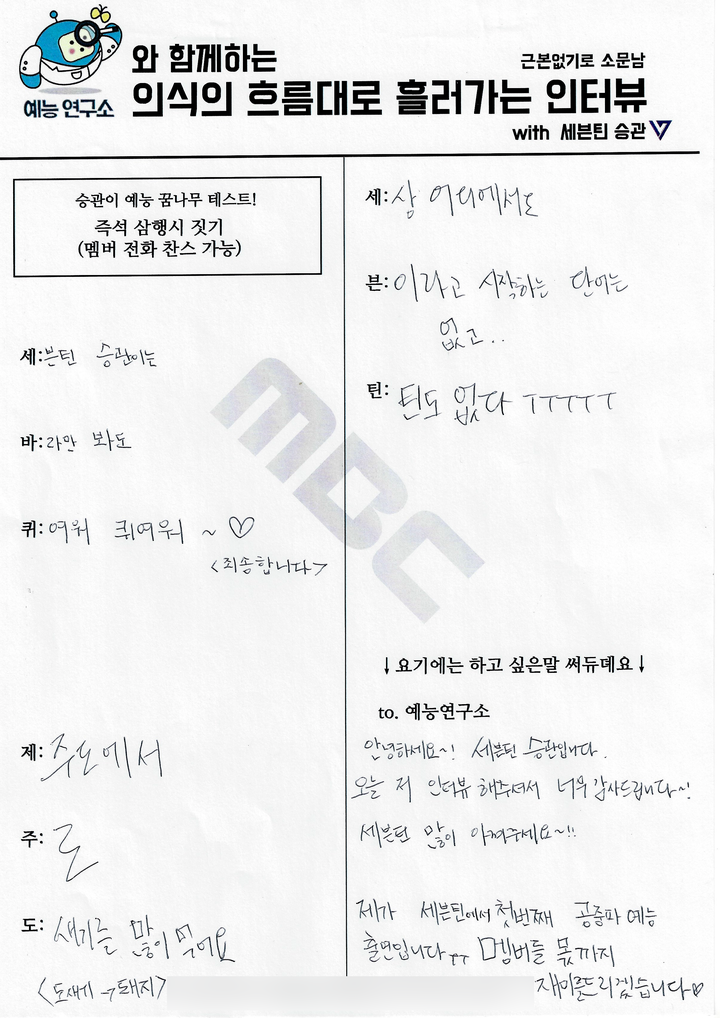 예능 연구소
와 함께하는
근본없기로 소문남
의식의 흐름대로 흘러가는 인터뷰
with 세븐틴 승관
승관이 예능 꿈나무 테스트!
즉석 삼행시 짓기
(멤버 전화 찬스 가능)
세:븐틴 승관이는
바:라만 봐도
퀴:여워 퀴여워 ~ ♡
<죄송합니다>
제:주도에서
주:로
도:새기를 많이 먹어요
<도새기→돼지>
세:상 어디에서도
븐:이라고 시작하는 단어는
없고..
틴:틴도 없다 ㅜㅜㅜㅜㅜ
MBC
↓요기에는 하고 싶은말 써듀데요↓
to. 예능연구소
안녕하세요~! 세븐틴 승관입니다.
오늘 저 인터뷰 해주셔서 너무 감사드립니다~!
세븐틴 많이 아껴주세요~!!
제가 세븐틴에서 첫번째 공중파 예능
출연입니다ㅠㅠ 멤버들 몫까지
재미를드리겠습니다♡